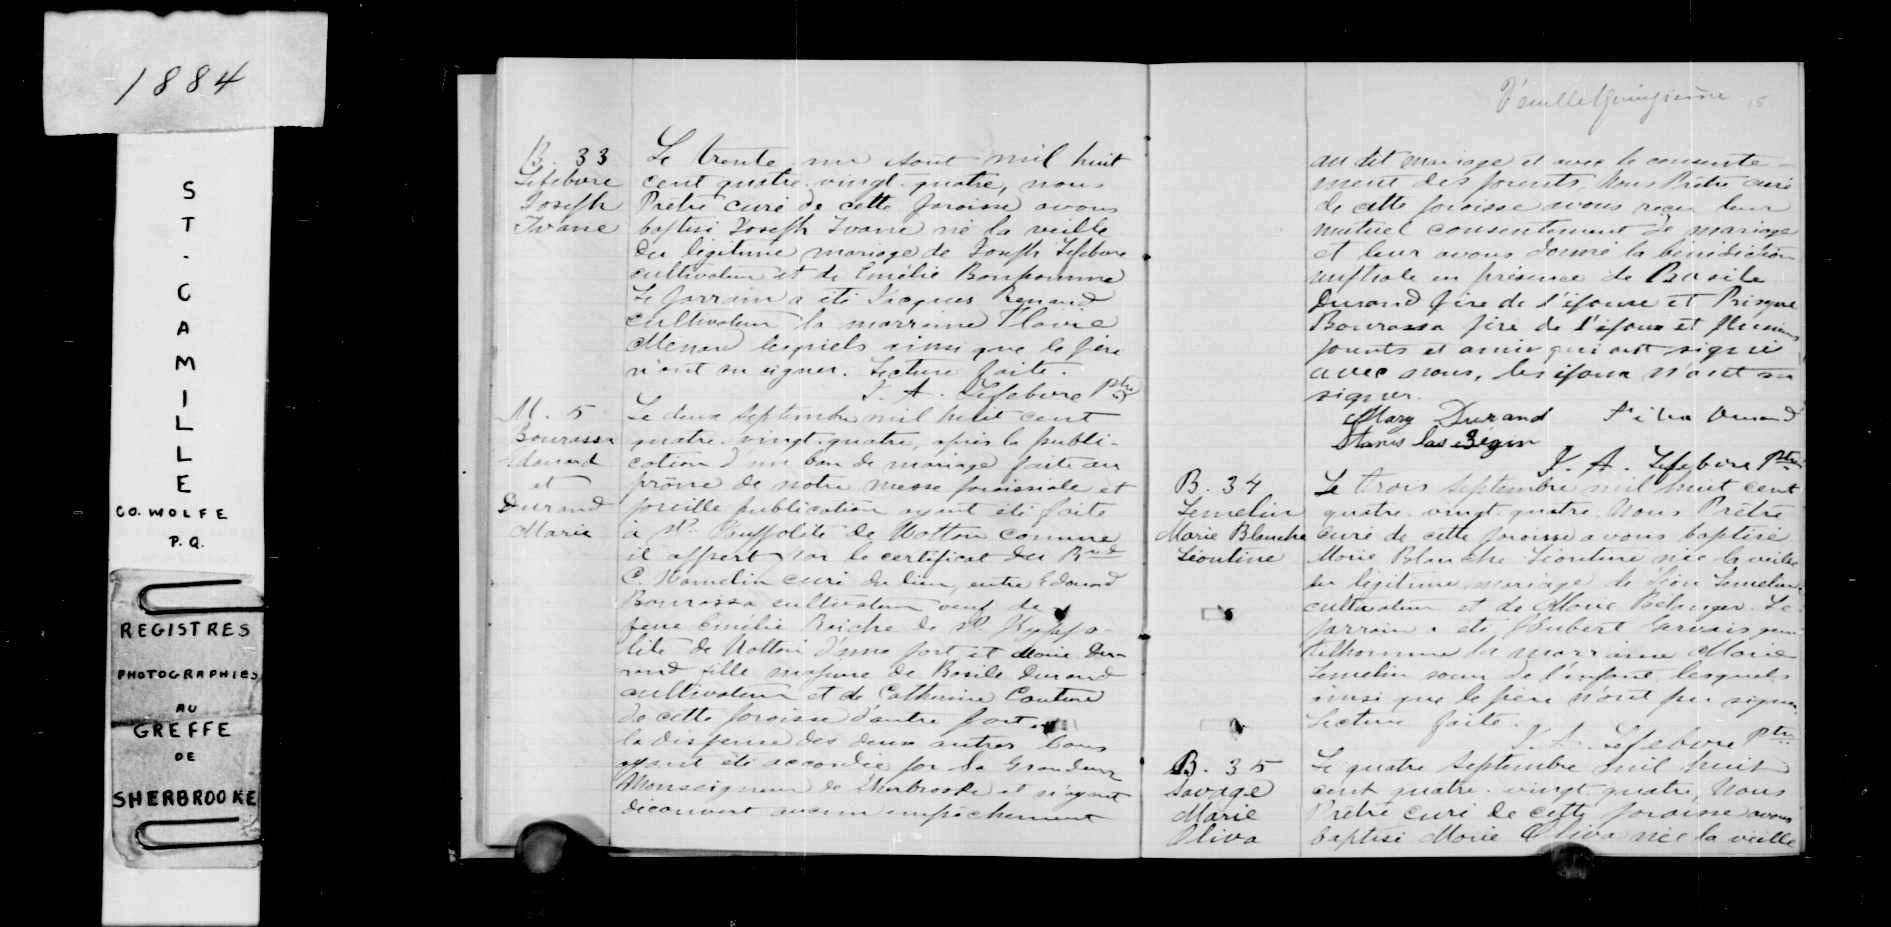 1884
ST. CAMILLE
CO. WOLFE
P.Q.
REGISTRES
PHOTOGRAPHIES
AU
GREFFE
DE
SHERBROOKE
B. 33
Lefebvre
Joseph
Ivane
Le trente un Aout mil huit
cent quatre-vingt-quatre, nous
Prêtre curé de cette paroisse avons
baptisé Joseph Ivane né la veille
du légitime mariage de Joseph Lefebvre
cultivateur et de Emélie Bonhomme
Le parrain a été Jacques
cultivateur la marraine Flavie
Menard lesquels ainsi que le père
n'ont su signer. Lecture faite.
J. A. Lefebvre Ptre
M. 5
Bourassa
Edouard
et
Durand
Marie
Le deux Septembre mil huit cent
quatre-vingt-quatre, après la publi-
cation d'un ban de mariage faite au
prône de notre messe paroissiale et
pareille publication ayant été faite
à St. Hyppolite de Wotton comme
il appert par le certificat du Rvd
C. Hamelin curé du lieu, entre Edouard
Bourassa cultivateur veuf de
feue Emélie de St. Hyppo-
lite de Wotton d'une part et Marie Du-
rand fille majeure de Basile Durand
cultivateur et de Catherine Couture
de cette paroisse d'autre part.
la dispense des deux autres bans
ayant été accordée par Sa Grandeur
Monseigneur de Sherbrooke et n'ayant
découvert aucun empêchement
Feuillet quinzième 15
au dit mariage et avec le consente-
ment des parents, Nous Prêtre curé
de cette paroisse avons reçu leur
mutuel consentement de mariage
et leur avons donné la bénédiction
nuptiale en présence de Basile
Durand père de l'épouse et Prisque
Bourassa père de l'époux et plusieurs
parents et amis qui ont signé
avec nous, les époux n'ont su
signer.
Mary Durand Durand
Stanis las Begin
J. A. Lefebvre Ptre
B. 34
Lemelin
Marie Blanche
Léontine
Le trois Septembre mil huit cent
quatre-vingt-quatre, Nous Prêtre
curé de cette paroisse avons baptisé
Marie Blanche Léontine née la veille
du légitime mariage de Léon Lemelin
cultivateur et de Marie Bélanger. Le
parrain a été Hubert Gervais gen-
tilhomme la marraine Marie
Lemelin soeur de l'enfant lesquels
ainsi que le père n'ont pu signer.
Lecture faite.
J. A. Lefebvre Ptre
B. 35
Savage
Marie
Oliva
Le quatre Septembre mil huit
cent quatre-vingt quatre, Nous
Prêtre curé de cette paroisse avons
baptisé Marie Oliva née la veille